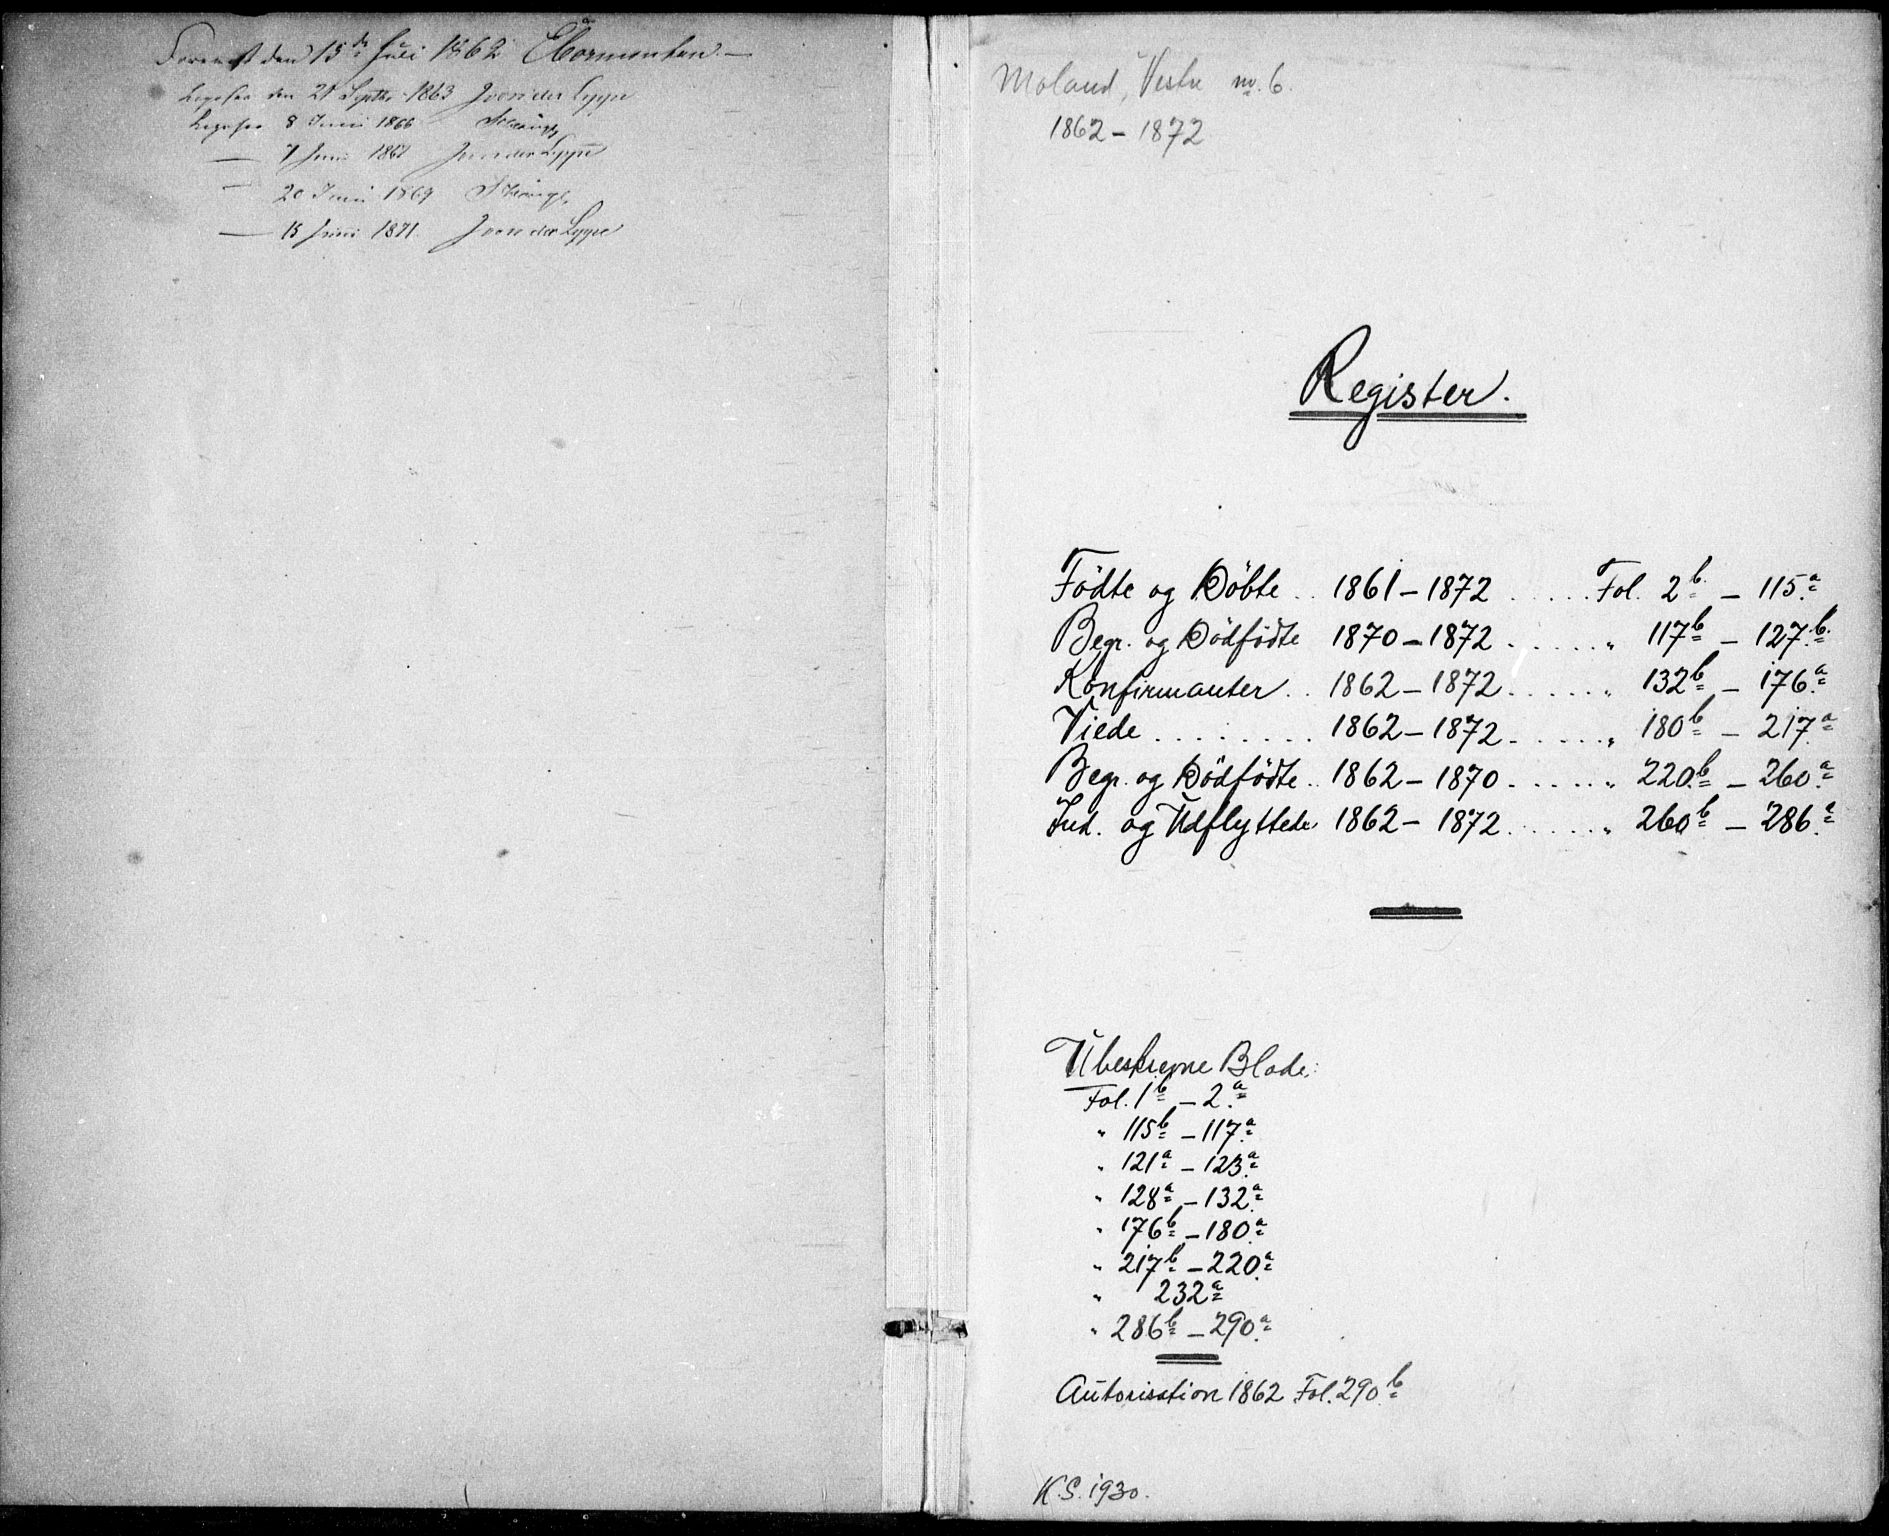 Forevist den 15de Juli 1862
Ligesaa den 21 Septbr. 1863 J von der Lippe
Ligesaa 8 Juni 1866
— 7 Juni 1867 J von der Lippe
— 20 Juni 1869
— 15 Juni 1871. J von der Lippe
Moland, Vestre no. 6.
1862 – 1872
Register.
Födte og Döbte .. 1861 – 1872 ..... Fol. 2b – 115a
Begr. og Dödfödte 1870 – 1872 ..... " 117b – 127b.
Konfirmanter .. 1862 – 1872 ..... " 132b – 176a
Viede ........ 1862 – 1872 ..... " 180b – 217a
Begr. og Dödfödte .. 1862 – 1870 ..... " 220b – 260a
Ind. og Udflyttede 1862 – 1872 ..... " 260b – 286a
Ubeskrevne Blade:
Fol. 1b – 2a
" 115b – 117a
" 121a – 123a
" 128a – 132a
" 176b – 180a
" 217b – 220a
" 232a
" 286b – 290a
Autorisation 1862 Fol. 290b
K.S. 1930.